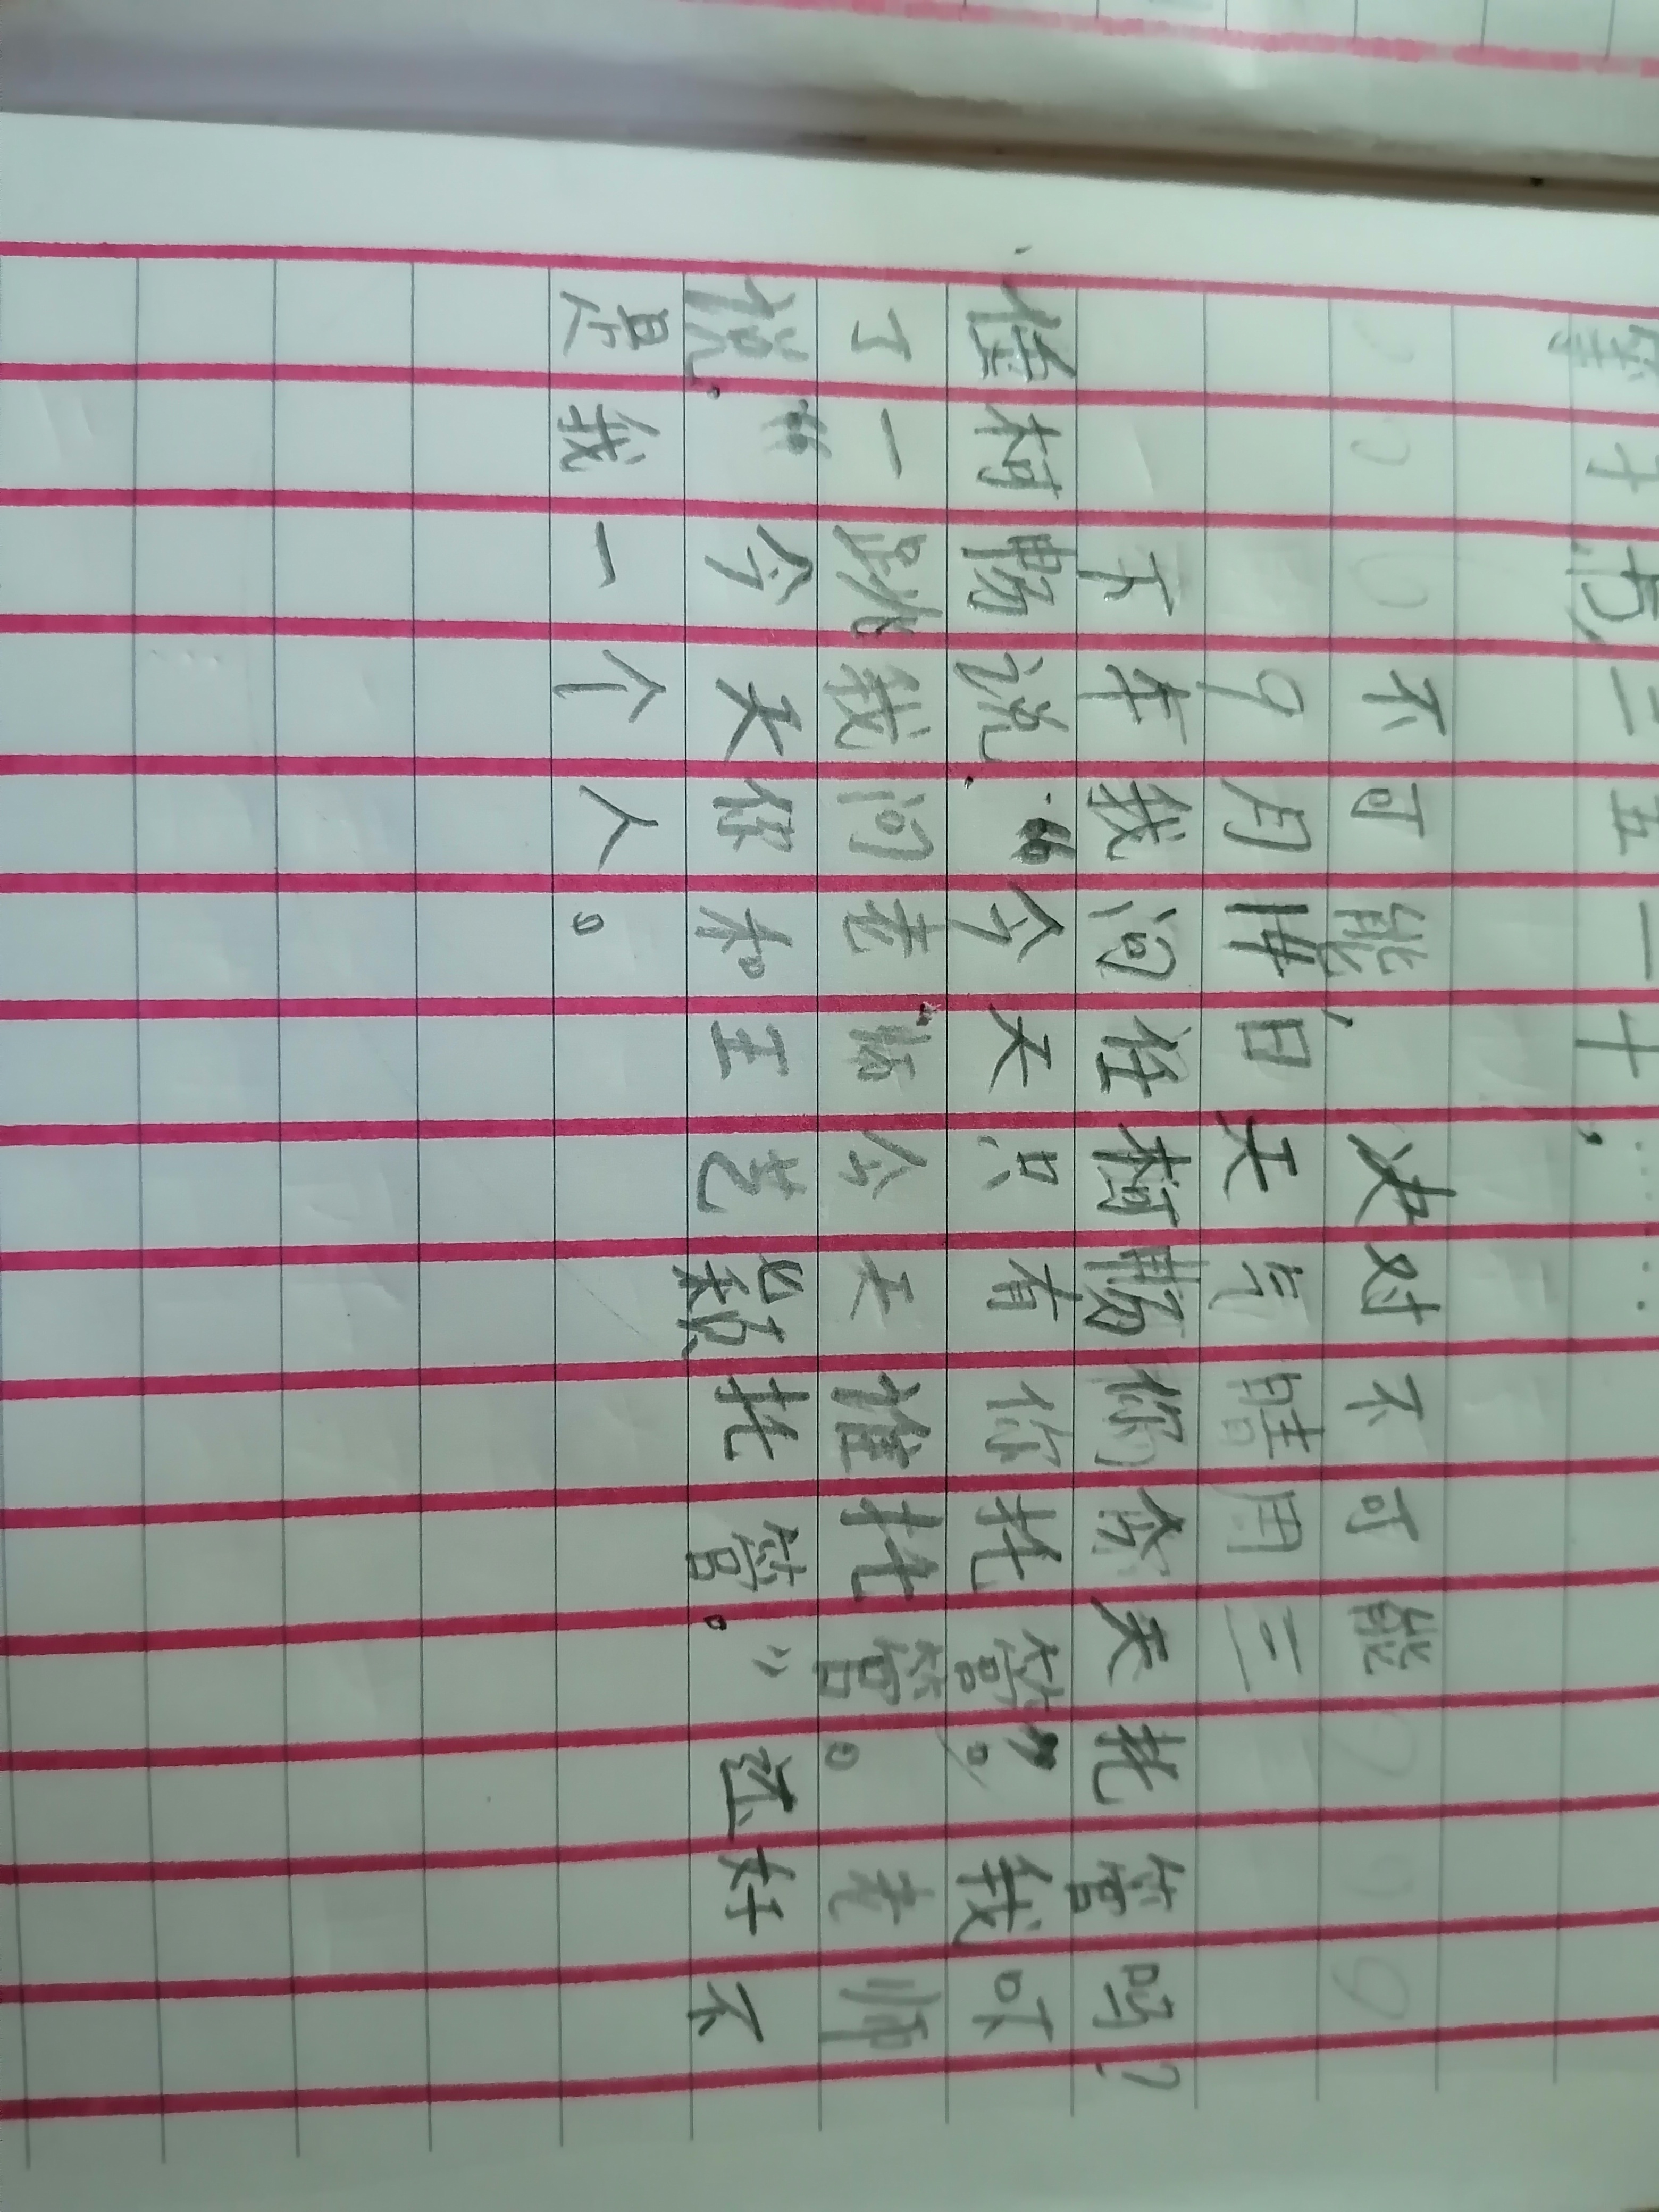 二五一十,……
不可能,决对不可能
9月 日天气晴周三
下车我问任柯畅你今天托管吗?
任柯畅说:“今天只有你托管。”我吓
了一跳我问老师今天谁托管。老师
说:“今天你和王艺颖托管。”还好不
是我一个人。